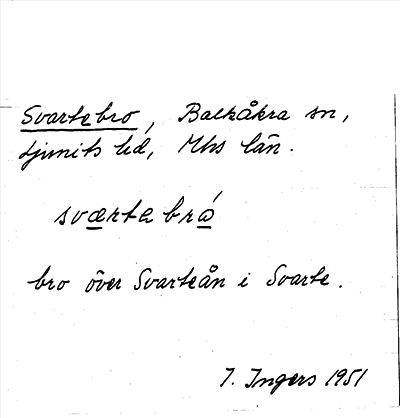 Svartebro, Balkåkra sn,
Ljunits hd, Mhs län.
sværta brá
bro över Svarteån i Svarte.
I. Ingers 1951